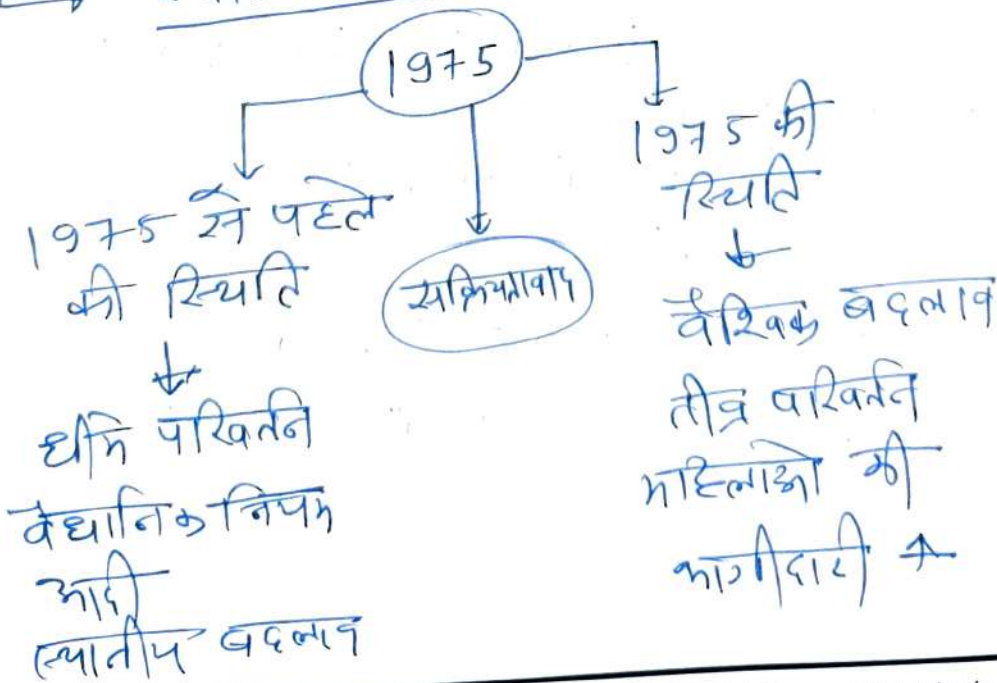 1975
1975 से पहले
की स्थिति
↓
धीमे परिवर्तन
वैधानिक नियम
आदी
स्थानीय बदलाव
सक्रियतावाद
1975 की
स्थिति
↓
वैश्विक बदलाव
तीव्र परिवर्तन
महिलाओ की
भागीदारी ↑